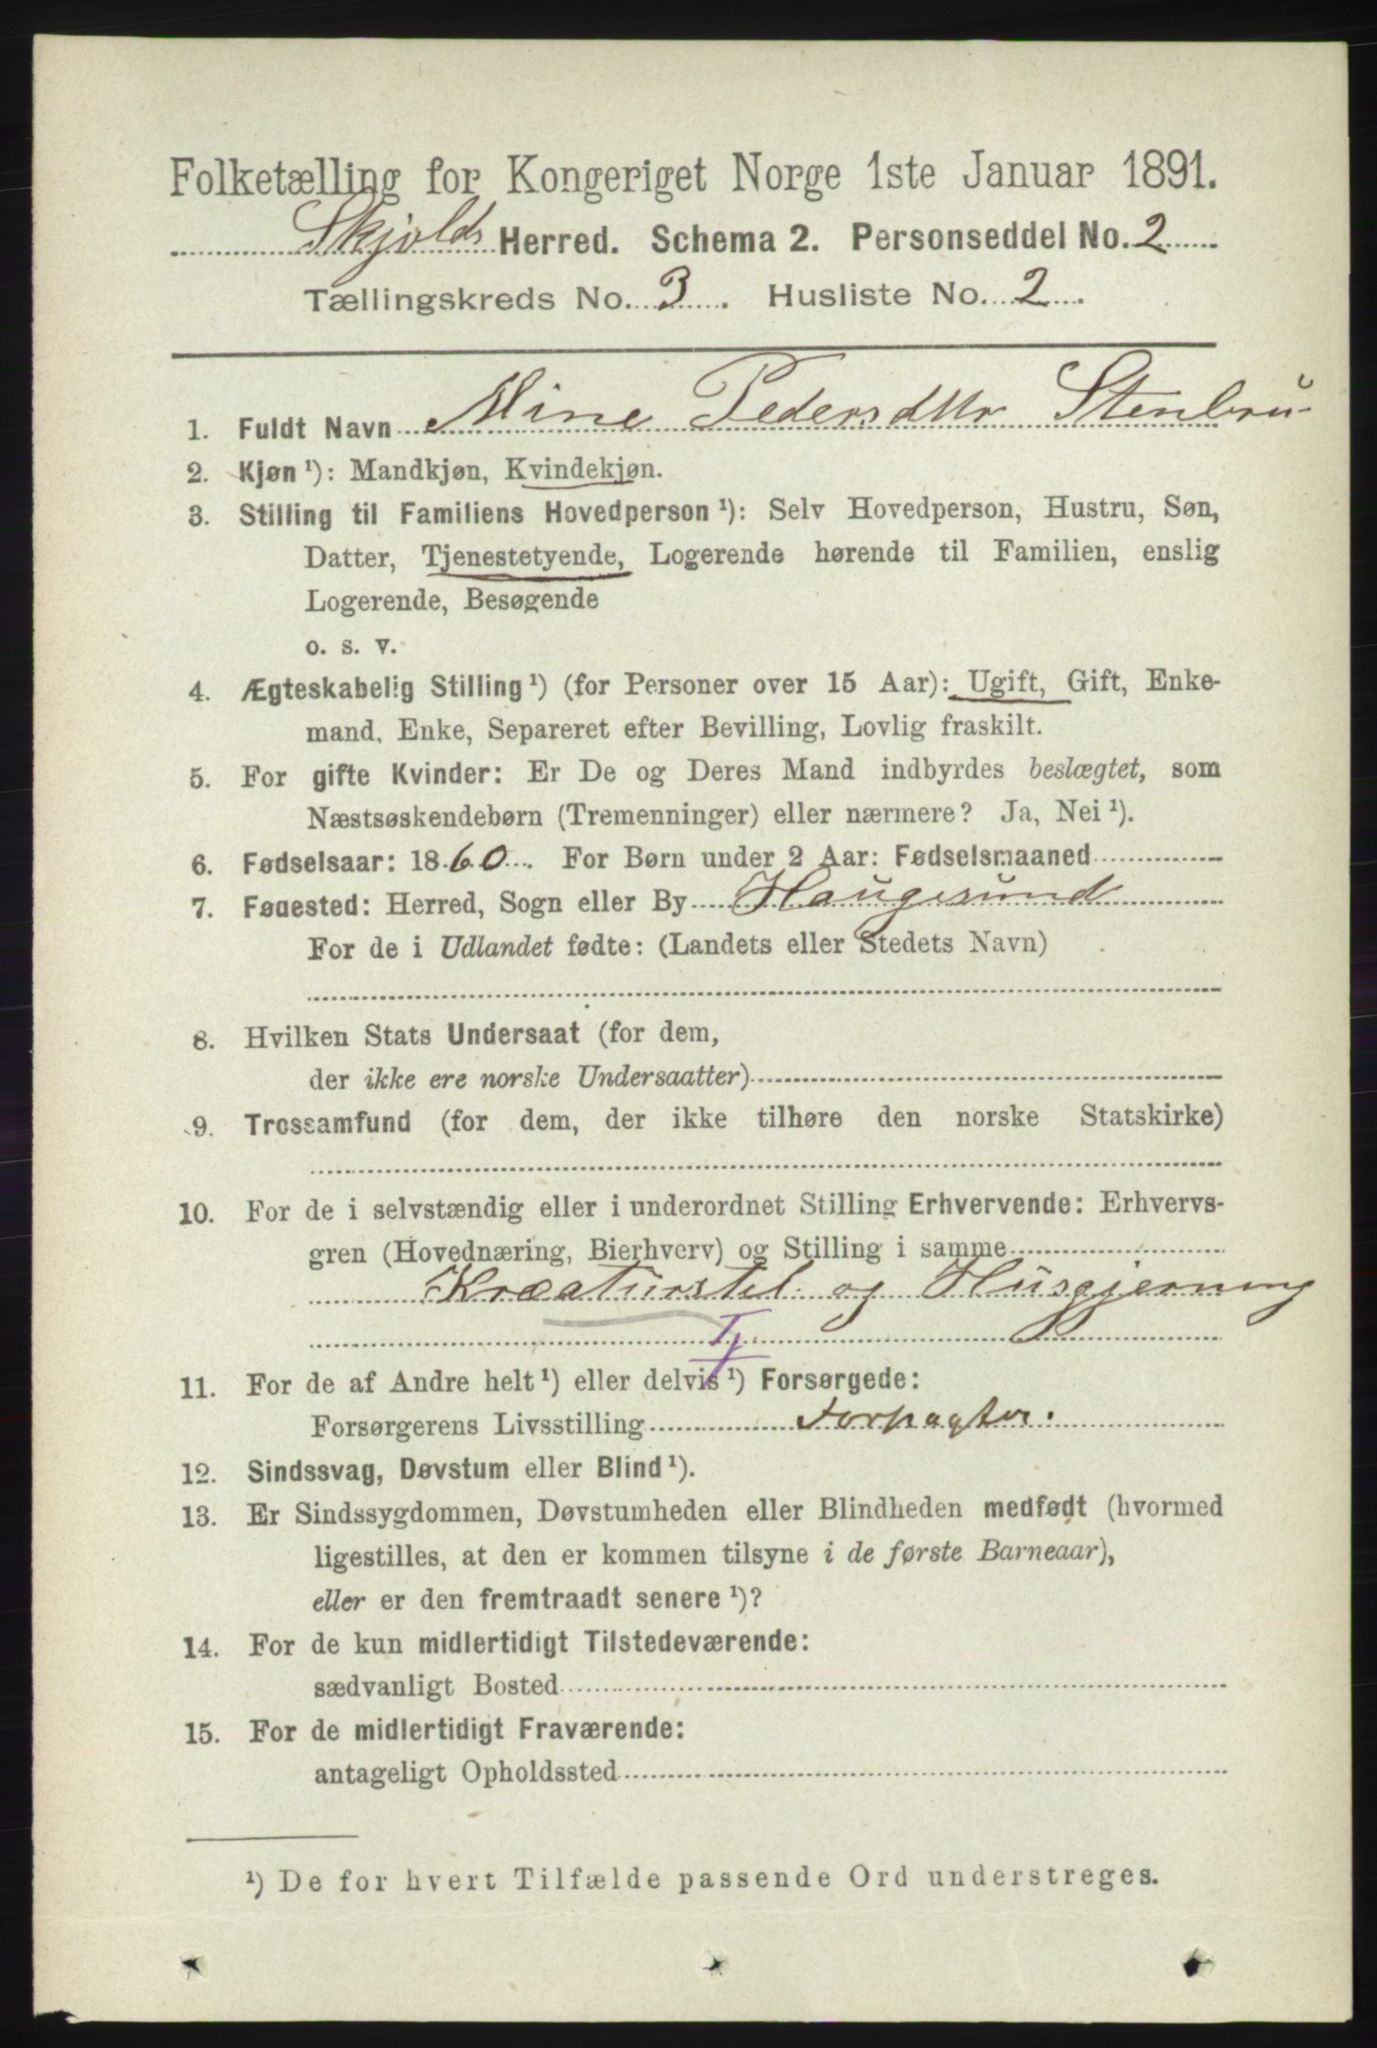 Folketælling for Kongeriget Norge 1ste Januar 1891.
Skjolds Herred. Schema 2. Personseddel No. 2
Tællingskreds No. 3. Husliste No. 2.
1. Fuldt Navn Mine Pedersdttr Stenbru
2. Kjøn ¹): Mandkjøn, Kvindekjøn.
3. Stilling til Familiens Hovedperson ¹): Selv Hovedperson, Hustru, Søn,
Datter, Tjenestetyende, Logerende hørende til Familien, enslig
Logerende, Besøgende
o. s. v.
4. Ægteskabelig Stilling ¹) (for Personer over 15 Aar): Ugift, Gift, Enke-
mand, Enke, Separeret efter Bevilling, Lovlig fraskilt.
5. For gifte Kvinder: Er De og Deres Mand indbyrdes beslægtet, som
Næstsøskendebørn (Tremenninger) eller nærmere? Ja, Nei ¹).
6. Fødselsaar: 1860. For Børn under 2 Aar: Fødselsmaaned
7. Fødested: Herred, Sogn eller By Haugesund
For de i Udlandet fødte: (Landets eller Stedets Navn)
8. Hvilken Stats Undersaat (for dem,
der ikke ere norske Undersaatter)
9. Trossamfund (for dem, der ikke tilhøre den norske Statskirke)
10. For de i selvstændig eller i underordnet Stilling Erhvervende: Erhvervs-
gren (Hovednæring, Bierhverv) og Stilling i samme
Kreaturstel og Husgjerning
Tj
11. For de af Andre helt ¹) eller delvis ¹) Forsørgede:
Forsørgerens Livsstilling Forpagter.
12. Sindssvag, Døvstum eller Blind ¹).
13. Er Sindssygdommen, Døvstumheden eller Blindheden medfødt (hvormed
ligestilles, at den er kommen tilsyne i de første Barneaar),
eller er den fremtraadt senere ¹)?
14. For de kun midlertidigt Tilstedeværende:
sædvanligt Bosted
15. For de midlertidigt Fraværende:
antageligt Opholdssted
¹) De for hvert Tilfælde passende Ord understreges.